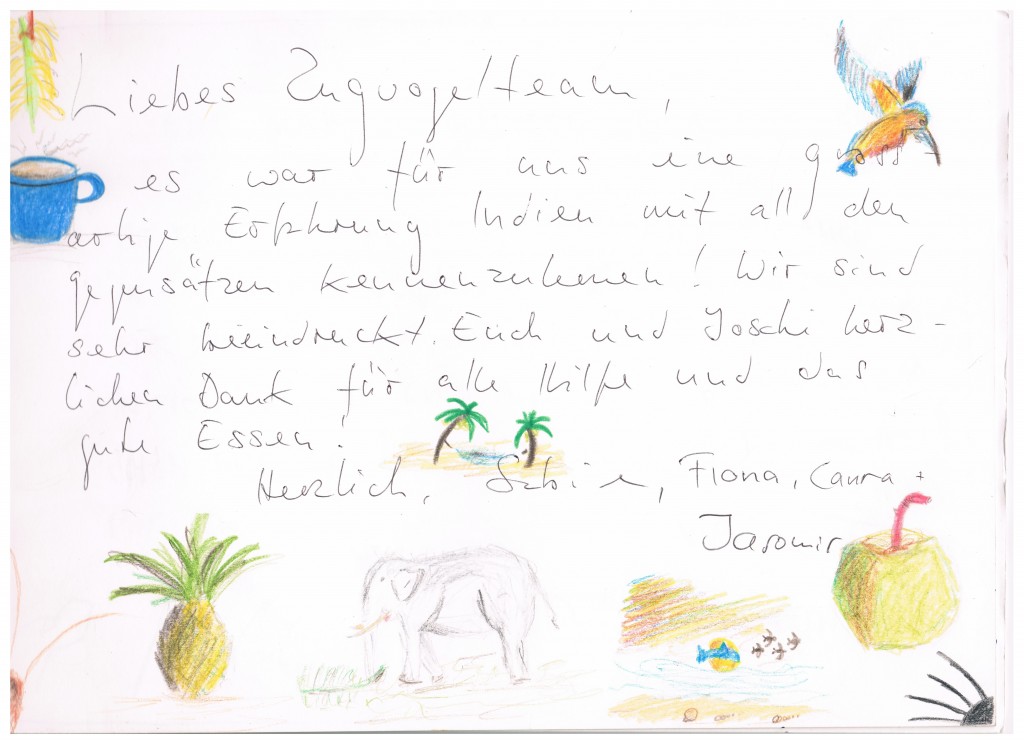 Liebes Zugvogelteam,
es war für uns eine gross-
artige Erfahrung Indien mit all den
gegensätzen kennenzulernen! Wir sind
sehr beeindruckt. Euch und Joschi herz-
lichen Dank für alle Hilfe und das
gute Essen!
Herzlich, Sabine, Fiona, Laura +
Jaromir